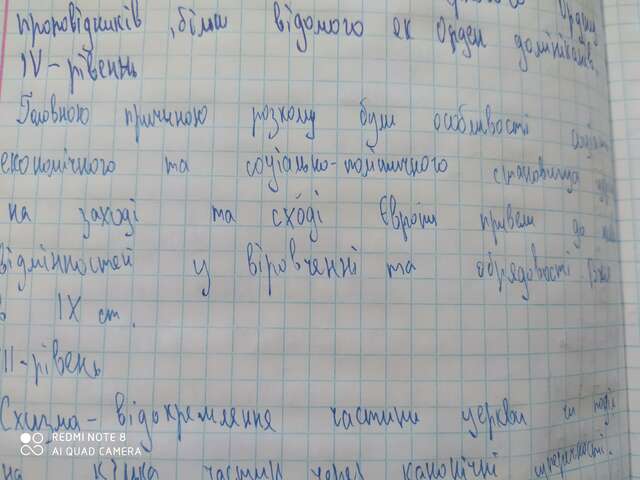 Ордену
проповідників, більш відомого як Орден домініканів.
IV-рівень
Головною причиною розколу були особливості
економічного та соціально-політичного становища
на заході та сході Європи привели до
відмінностей у віровченні та обрядовості
в IX ст.
III-рівень
Схизма - відокремлення частини церкви чи поділ
на кілька частин через канонічні
REDMI NOTE 8
AI QUAD CAMERA